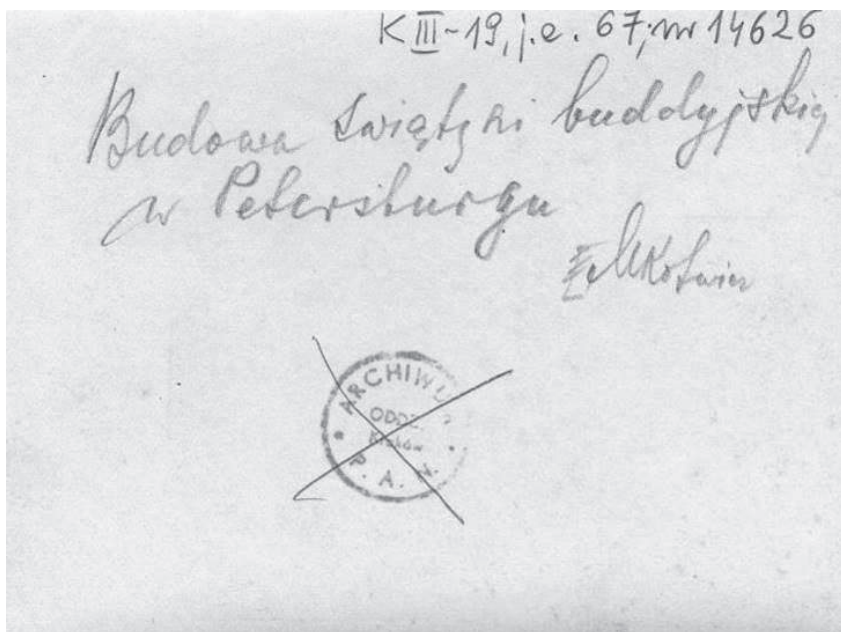 K III-19, j.e. 67, nr 14626
Budowa świątyni buddyjskiej
w Petersburgu
ARCHIWUM
ODDZ.
Kraków
P. A. N.